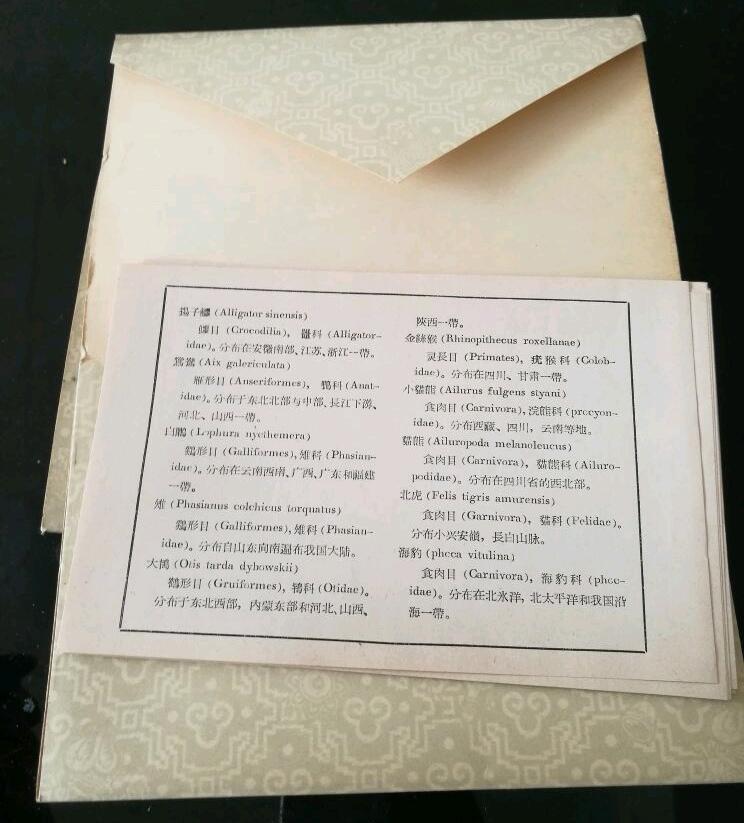 揚子鱷 (Alligator sinensis)
鱷目 (Crocodilia), 鼉科 (Alligator-
idae)。分布在安徽南部、江苏、浙江一帶。
鴛鴦 (Aix galericulata)
雁形目 (Anseriformes), 鴨科 (Anat-
idae)。分布于东北北部与中部、長江下游、
河北、山西一帶。
白鷳 (Lophura nycthemera)
鷄形目 (Galliformes), 雉科 (Phasian-
idae)。分布在云南西南、广西、广东和福建
一帶。
雉 (Phasianus colchicus torquatus)
鷄形目 (Galliformes), 雉科 (Phasian-
idae)。分布自山东向南遍布我国大陆。
大鴇 (Otis tarda dybowskii)
鶴形目 (Gruiformes), 鴇科 (Otidae)。
分布于东北西部, 內蒙东部和河北、山西、
陝西一帶。
金絲猴 (Rhinopithecus roxellanae)
灵長目 (Primates), 疣猴科 (Colob-
idae)。分布在四川、甘肃一帶。
小貓熊 (Ailurus fulgens styani)
食肉目 (Carnivora), 浣熊科 (procyon-
idae)。分布西藏、四川, 云南等地。
貓熊 (Ailuropoda melanoleucus)
食肉目 (Carnivora), 貓熊科 (Ailuro-
podidae)。分布在四川省的西北部。
北虎 (Felis tigris amurensis)
食肉目 (Garnivora), 貓科 (Felidae)。
分布小兴安嶺, 長白山脉。
海豹 (phoca vitulina)
食肉目 (Carnivora), 海豹科 (phoc-
idae)。分布在北氷洋, 北太平洋和我国沿
海一帶。